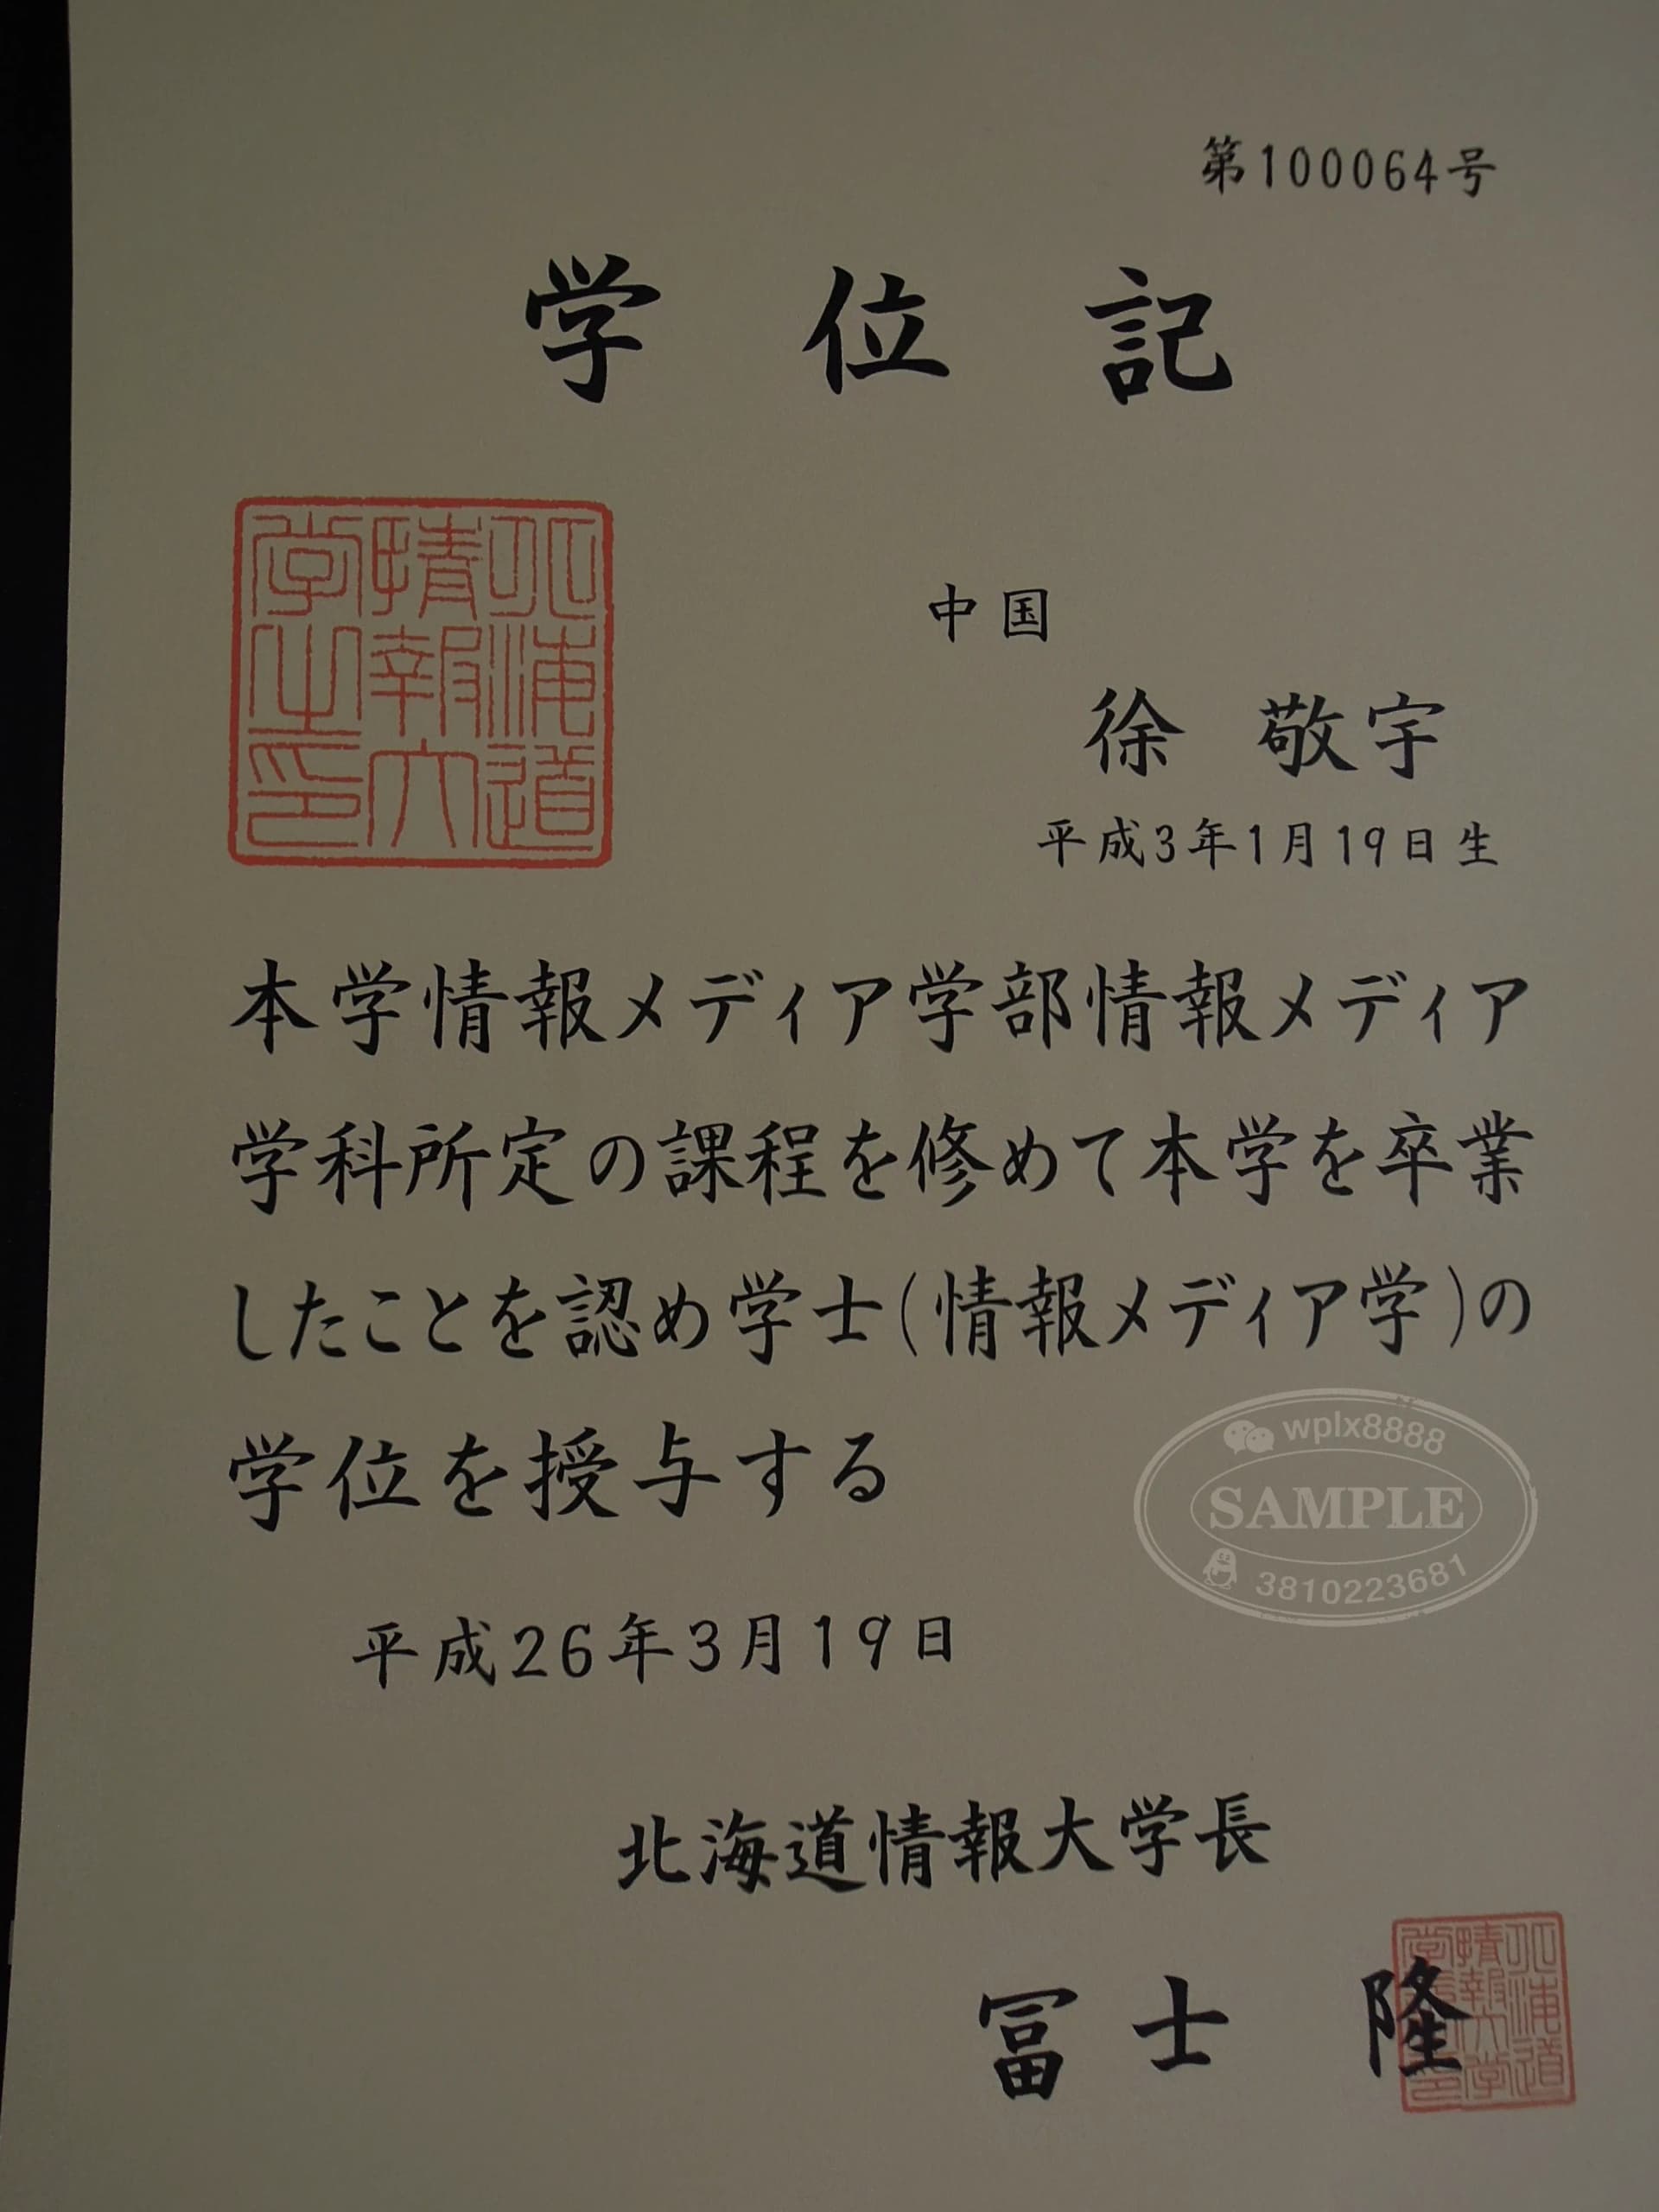 第100064号
学位記
北海道情報大学之印
中国
徐 敬宇
平成3年1月19日生
本学情報メディア学部情報メディア
学科所定の課程を修めて本学を卒業
したことを認め学士(情報メディア学)の
学位を授与する
wplx8888
SAMPLE
3810223681
平成26年3月19日
北海道情報大学長
冨士 隆